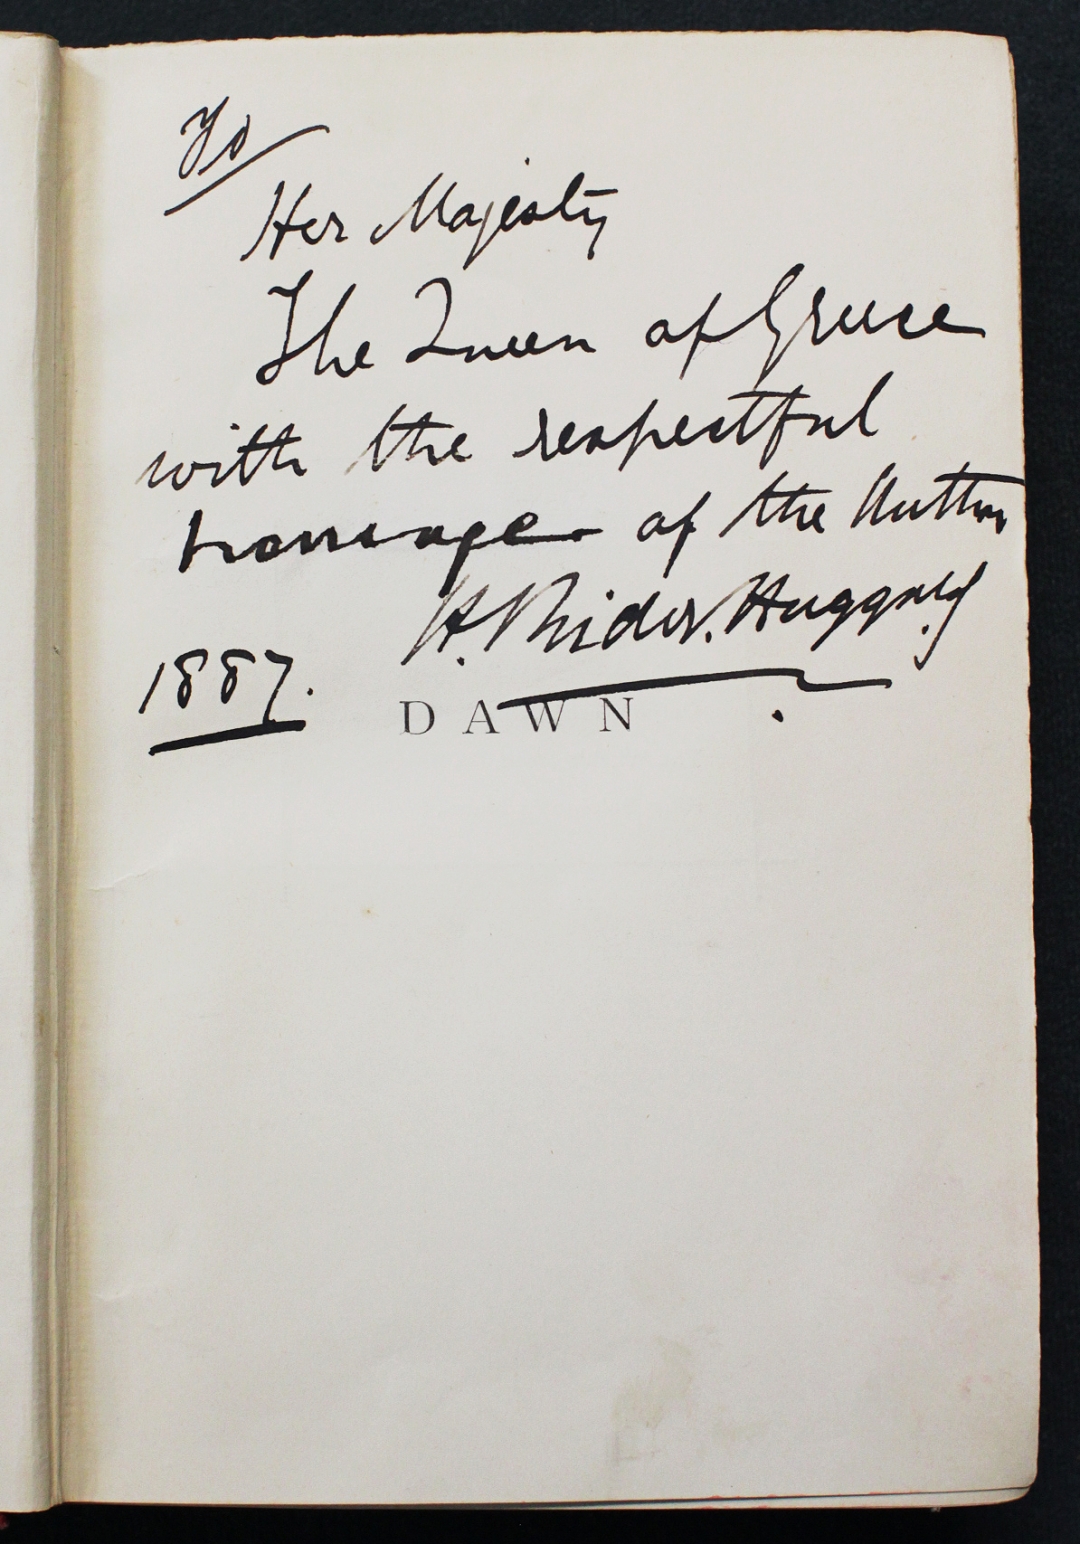 To
Her Majesty
The Queen of Greece
with the respectful
homage of the Author
H. Rider. Haggard
1887.
DAWN